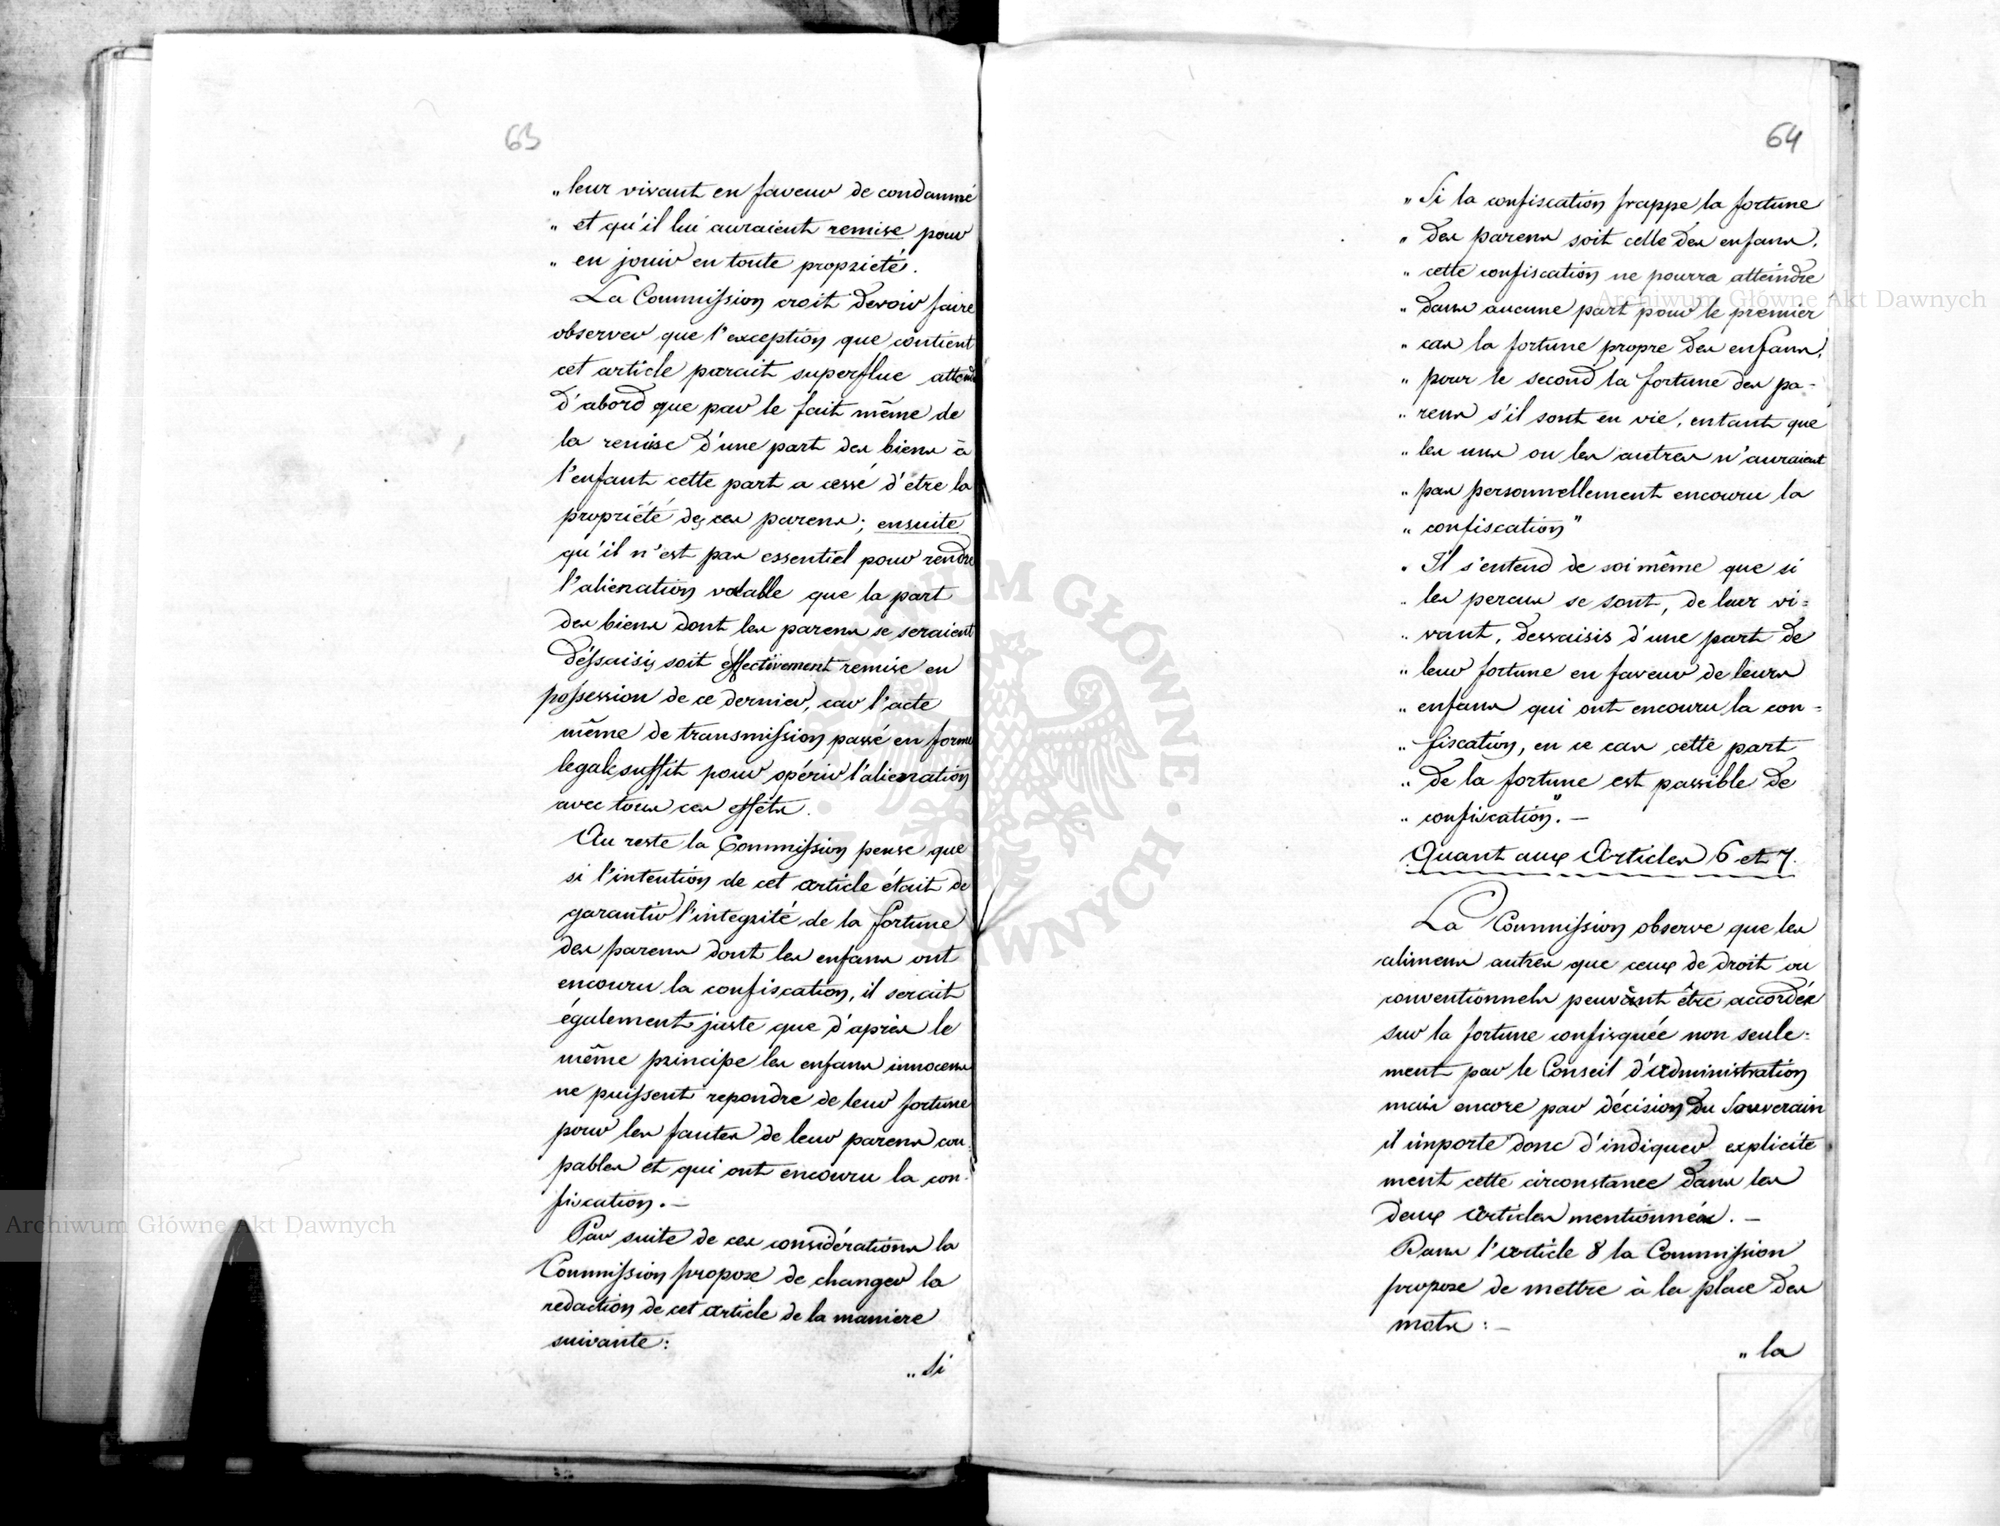 63
„ leur vivant en faveur de condamné
„ et qu'il lui auraient remise pour
„ en jouir en toute propriété.
La Commission croit devoir faire
observer que l'exception que contient
cet article parait superflue attendu
d'abord que par le fait même de
la remise d'une part des biens à
l'enfant cette part a cessé d'etre la
propriété de ces parens; ensuite
qu'il n'est pas essentiel pour rendre
l'alienation valable que la part
des biens dont les parens se seraient
dessaisis soit effectivement remise en
possession de ce dernier, car l'acte
même de transmission passé en forme
legale suffit pour opérir l'alienation
avec tous ces effets.
Au reste la Commission pense que
si l'intention de cet article était de
garantir l'integrité de la fortune
des parens dont les enfans ont
encouru la confiscation, il serait
également juste que d'après le
même principe les enfans innocens
ne puissent repondre de leur fortune
pour les fautes de leur parens cou-
pables et qui ont encouru la con-
fiscation. —
Par suite de ces considérations la
Commission propose de changer la
redaction de cet article de la maniere
suivante:
„ Si
64
„ Si la confiscation frappe la fortune
„ des parens soit celle des enfans,
„ cette confiscation ne pourra atteindre
„ dans aucune part pour le premier
„ cas la fortune propre des enfans,
„ pour le second la fortune des pa-
„ rens s'il sont en vie, entant que
„ les uns ou les autres n'auraient
„ pas personnellement encouru la
„ confiscation"
„ Il s'entend de soi même que si
„ les parens se sont, de leur vi=
„ vant, dessaisis d'une part de
„ leur fortune en faveur de leurs
„ enfans qui ont encouru la con=
„ fiscation, en ce cas cette part
„ de la fortune est passible de
„ confiscation." —
Quant aux Articles 6 et 7.
La Commission observe que les
alimens autres que ceux de droit ou
conventionnels peuvent être accordés
sur la fortune confisquée non seule=
ment par le Conseil d'administration
mais encore par décision du Souverain
il importe donc d'indiquer explicite
ment cette circonstance dans les
deux articles mentionnés. —
Dans l'article 8 la Commission
propose de mettre à la place des
mots: —
„ la
Archiwum Główne Akt Dawnych
Archiwum Główne Akt Dawnych
ARCHIWUM GŁÓWNE AKT DAWNYCH